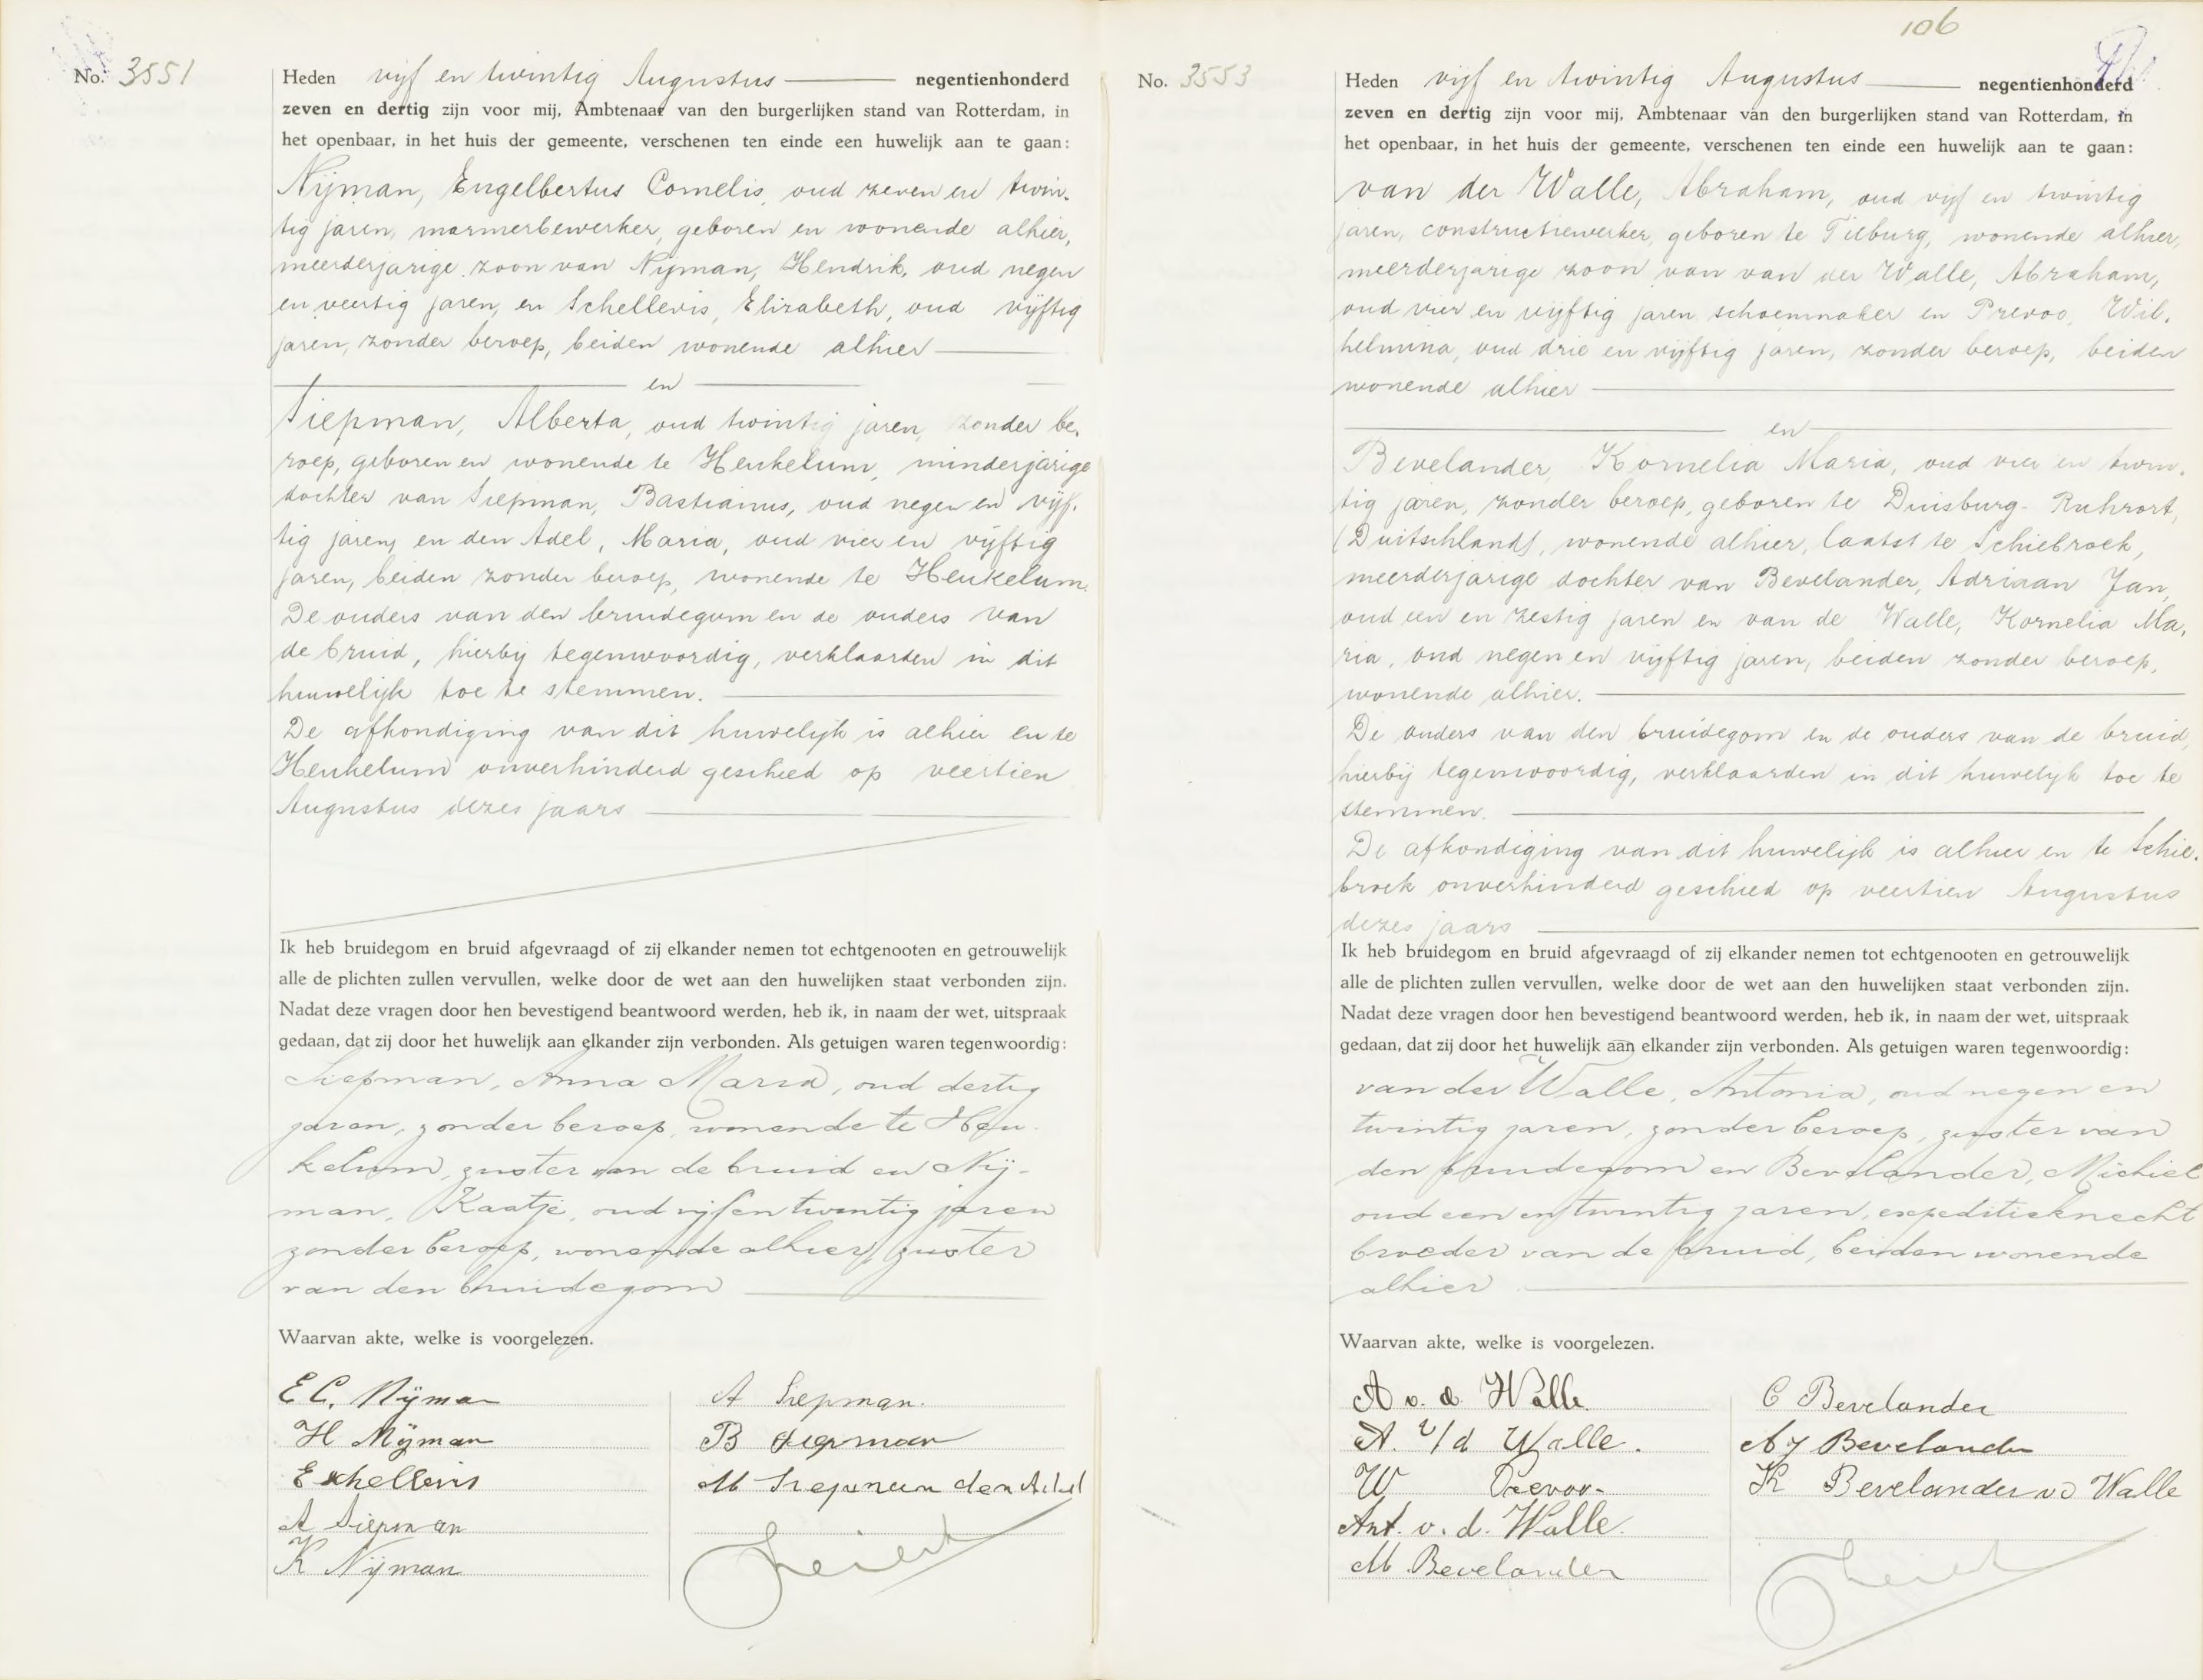 No. 3551
Heden vijf en twintig Augustus negentienhonderd
zeven en dertig zijn voor mij, Ambtenaar van den burgerlijken stand van Rotterdam, in
het openbaar, in het huis der gemeente, verschenen ten einde een huwelijk aan te gaan:
Nijman, Engelbertus Cornelis, oud zeven en twin-
tig jaren, marmerbewerker, geboren en wonende alhier,
meerderjarige zoon van Nijman, Hendrik, oud negen
en veertig jaren, en Schellevis, Elizabeth, oud vijftig
jaren, zonder beroep, beiden wonende alhier
en
Siepman, Alberta, oud twintig jaren, zonder be-
roep, geboren en wonende te Heukelum, minderjarige
dochter van Siepman, Bastianus, oud negen en vijf-
tig jaren, en den Adel, Maria, oud vier en vijftig
jaren, beiden zonder beroep, wonende te Heukelum.
De ouders van den bruidegom en de ouders van
de bruid, hierbij tegenwoordig, verklaarden in dit
huwelijk toe te stemmen.
De afkondiging van dit huwelijk is alhier en te
Heukelum onverhinderd geschied op veertien
Augustus dezes jaars
Ik heb bruidegom en bruid afgevraagd of zij elkander nemen tot echtgenooten en getrouwelijk
alle de plichten zullen vervullen, welke door de wet aan den huwelijken staat verbonden zijn.
Nadat deze vragen door hen bevestigend beantwoord werden, heb ik, in naam der wet, uitspraak
gedaan, dat zij door het huwelijk aan elkander zijn verbonden. Als getuigen waren tegenwoordig:
Siepman, Anna Maria, oud dertig
jaren, zonder beroep, wonende te Heu-
kelum, zuster van de bruid en Nij-
man, Kaatje, oud vijf en twintig jaren
zonder beroep, wonende alhier, zuster
van den bruidegom
Waarvan akte, welke is voorgelezen.
E C. Nijman
H Nijman
E Schellevis
A Siepman
K Nijman
A Siepman.
B Siepman
M Siepman den Adel
106
No. 3553
Heden vijf en twintig Augustus negentienhonderd
zeven en dertig zijn voor mij, Ambtenaar van den burgerlijken stand van Rotterdam, in
het openbaar, in het huis der gemeente, verschenen ten einde een huwelijk aan te gaan:
van der Walle, Abraham, oud vijf en twintig
jaren, constructiewerker, geboren te Tilburg, wonende alhier,
meerderjarige zoon van van der Walle, Abraham,
oud vier en vijftig jaren schoenmaker en Prevoo, Wil-
helmina, oud drie en vijftig jaren, zonder beroep, beiden
wonende alhier
en
Bevelander, Kornelia Maria, oud vier en twin-
tig jaren, zonder beroep, geboren te Duisburg-Ruhrort,
(Duitschland), wonende alhier, laatst te Schiebroek,
meerderjarige dochter van Bevelander, Adriaan Jan,
oud een en zestig jaren en van de Walle, Kornelia Ma-
ria, oud negen en vijftig jaren, beiden zonder beroep,
wonende alhier.
De ouders van den bruidegom en de ouders van de bruid,
hierbij tegenwoordig, verklaarden in dit huwelijk toe te
stemmen.
De afkondiging van dit huwelijk is alhier en te Schie-
broek onverhinderd geschied op veertien Augustus
dezes jaars
Ik heb bruidegom en bruid afgevraagd of zij elkander nemen tot echtgenooten en getrouwelijk
alle de plichten zullen vervullen, welke door de wet aan den huwelijken staat verbonden zijn.
Nadat deze vragen door hen bevestigend beantwoord werden, heb ik, in naam der wet, uitspraak
gedaan, dat zij door het huwelijk aan elkander zijn verbonden. Als getuigen waren tegenwoordig:
van der Walle, Antonia, oud negen en
twintig jaren, zonder beroep, zuster van
den bruidegom en Bevelander, Michiel
oud een en twintig jaren, expeditieknecht
broeder van de bruid, beiden wonende
alhier
Waarvan akte, welke is voorgelezen.
A v. d. Walle
A. v/d Walle.
W Prevoo.
Ant. v. d. Walle.
M Bevelander
C Bevelander
A J Bevelander
K Bevelander v d Walle